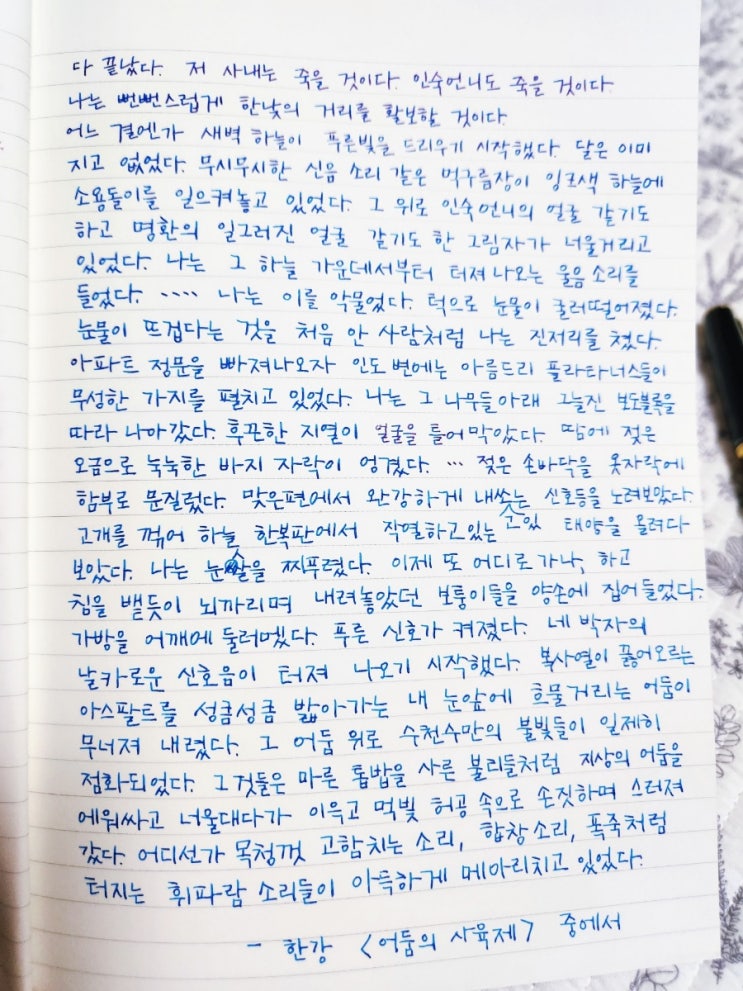 다 끝났다. 저 사내는 죽을 것이다. 인숙언니도 죽을 것이다.
나는 뻔뻔스럽게 한낮의 거리를 활보할 것이다.
어느 결엔가 새벽 하늘이 푸른빛을 드리우기 시작했다. 달은 이미
지고 없었다. 무시무시한 신음 소리 같은 먹구름장이 잉크색 하늘에
소용돌이를 일으켜놓고 있었다. 그 위로 인숙언니의 얼굴 같기도
하고 명환의 일그러진 얼굴 같기도 한 그림자가 너울거리고
있었다. 나는 그 하늘 가운데서부터 터져 나오는 울음 소리를
들었다. .... 나는 이를 악물었다. 턱으로 눈물이 굴러떨어졌다.
눈물이 뜨겁다는 것을 처음 안 사람처럼 나는 진저리를 쳤다.
아파트 정문을 빠져나오자 인도 변에는 아름드리 플라타너스들이
무성한 가지를 펼치고 있었다. 나는 그 나무들아래 그늘진 보도블록을
따라 나아갔다. 후끈한 지열이 얼굴을 틀어막았다. 땀에 젖은
오금으로 눅눅한 바지 자락이 엉겼다. ... 젖은 손바닥을 옷자락에
함부로 문질렀다. 맞은편에서 완강하게 내쏘는 신호등을 노려보았다.
고개를 꺾어 하늘 한복판에서 작열하고있는 고있 태양을 올려다
보았다. 나는 눈살을 찌푸렸다. 이제 또 어디로 가나, 하고
침을 뱉듯이 뇌까리며 내려놓았던 보퉁이들을 양손에 집어들었다.
가방을 어깨에 둘러멨다. 푸른 신호가 켜졌다. 네 박자의
날카로운 신호음이 터져 나오기 시작했다. 복사열이 끓어오르는
아스팔트를 성큼성큼 밟아가는 내 눈앞에 흐물거리는 어둠이
무너져 내렸다. 그 어둠 위로 수천수만의 불빛들이 일제히
점화되었다. 그것들은 마른 톱밥을 사른 불티들처럼 지상의 어둠을
에워싸고 너울대다가 이윽고 먹빛 허공 속으로 손짓하며 스러져
갔다. 어디선가 목청껏 고함치는 소리, 합창소리, 폭죽처럼
터지는 휘파람 소리들이 아득하게 메아리치고 있었다.
- 한강 <어둠의 사육제> 중에서